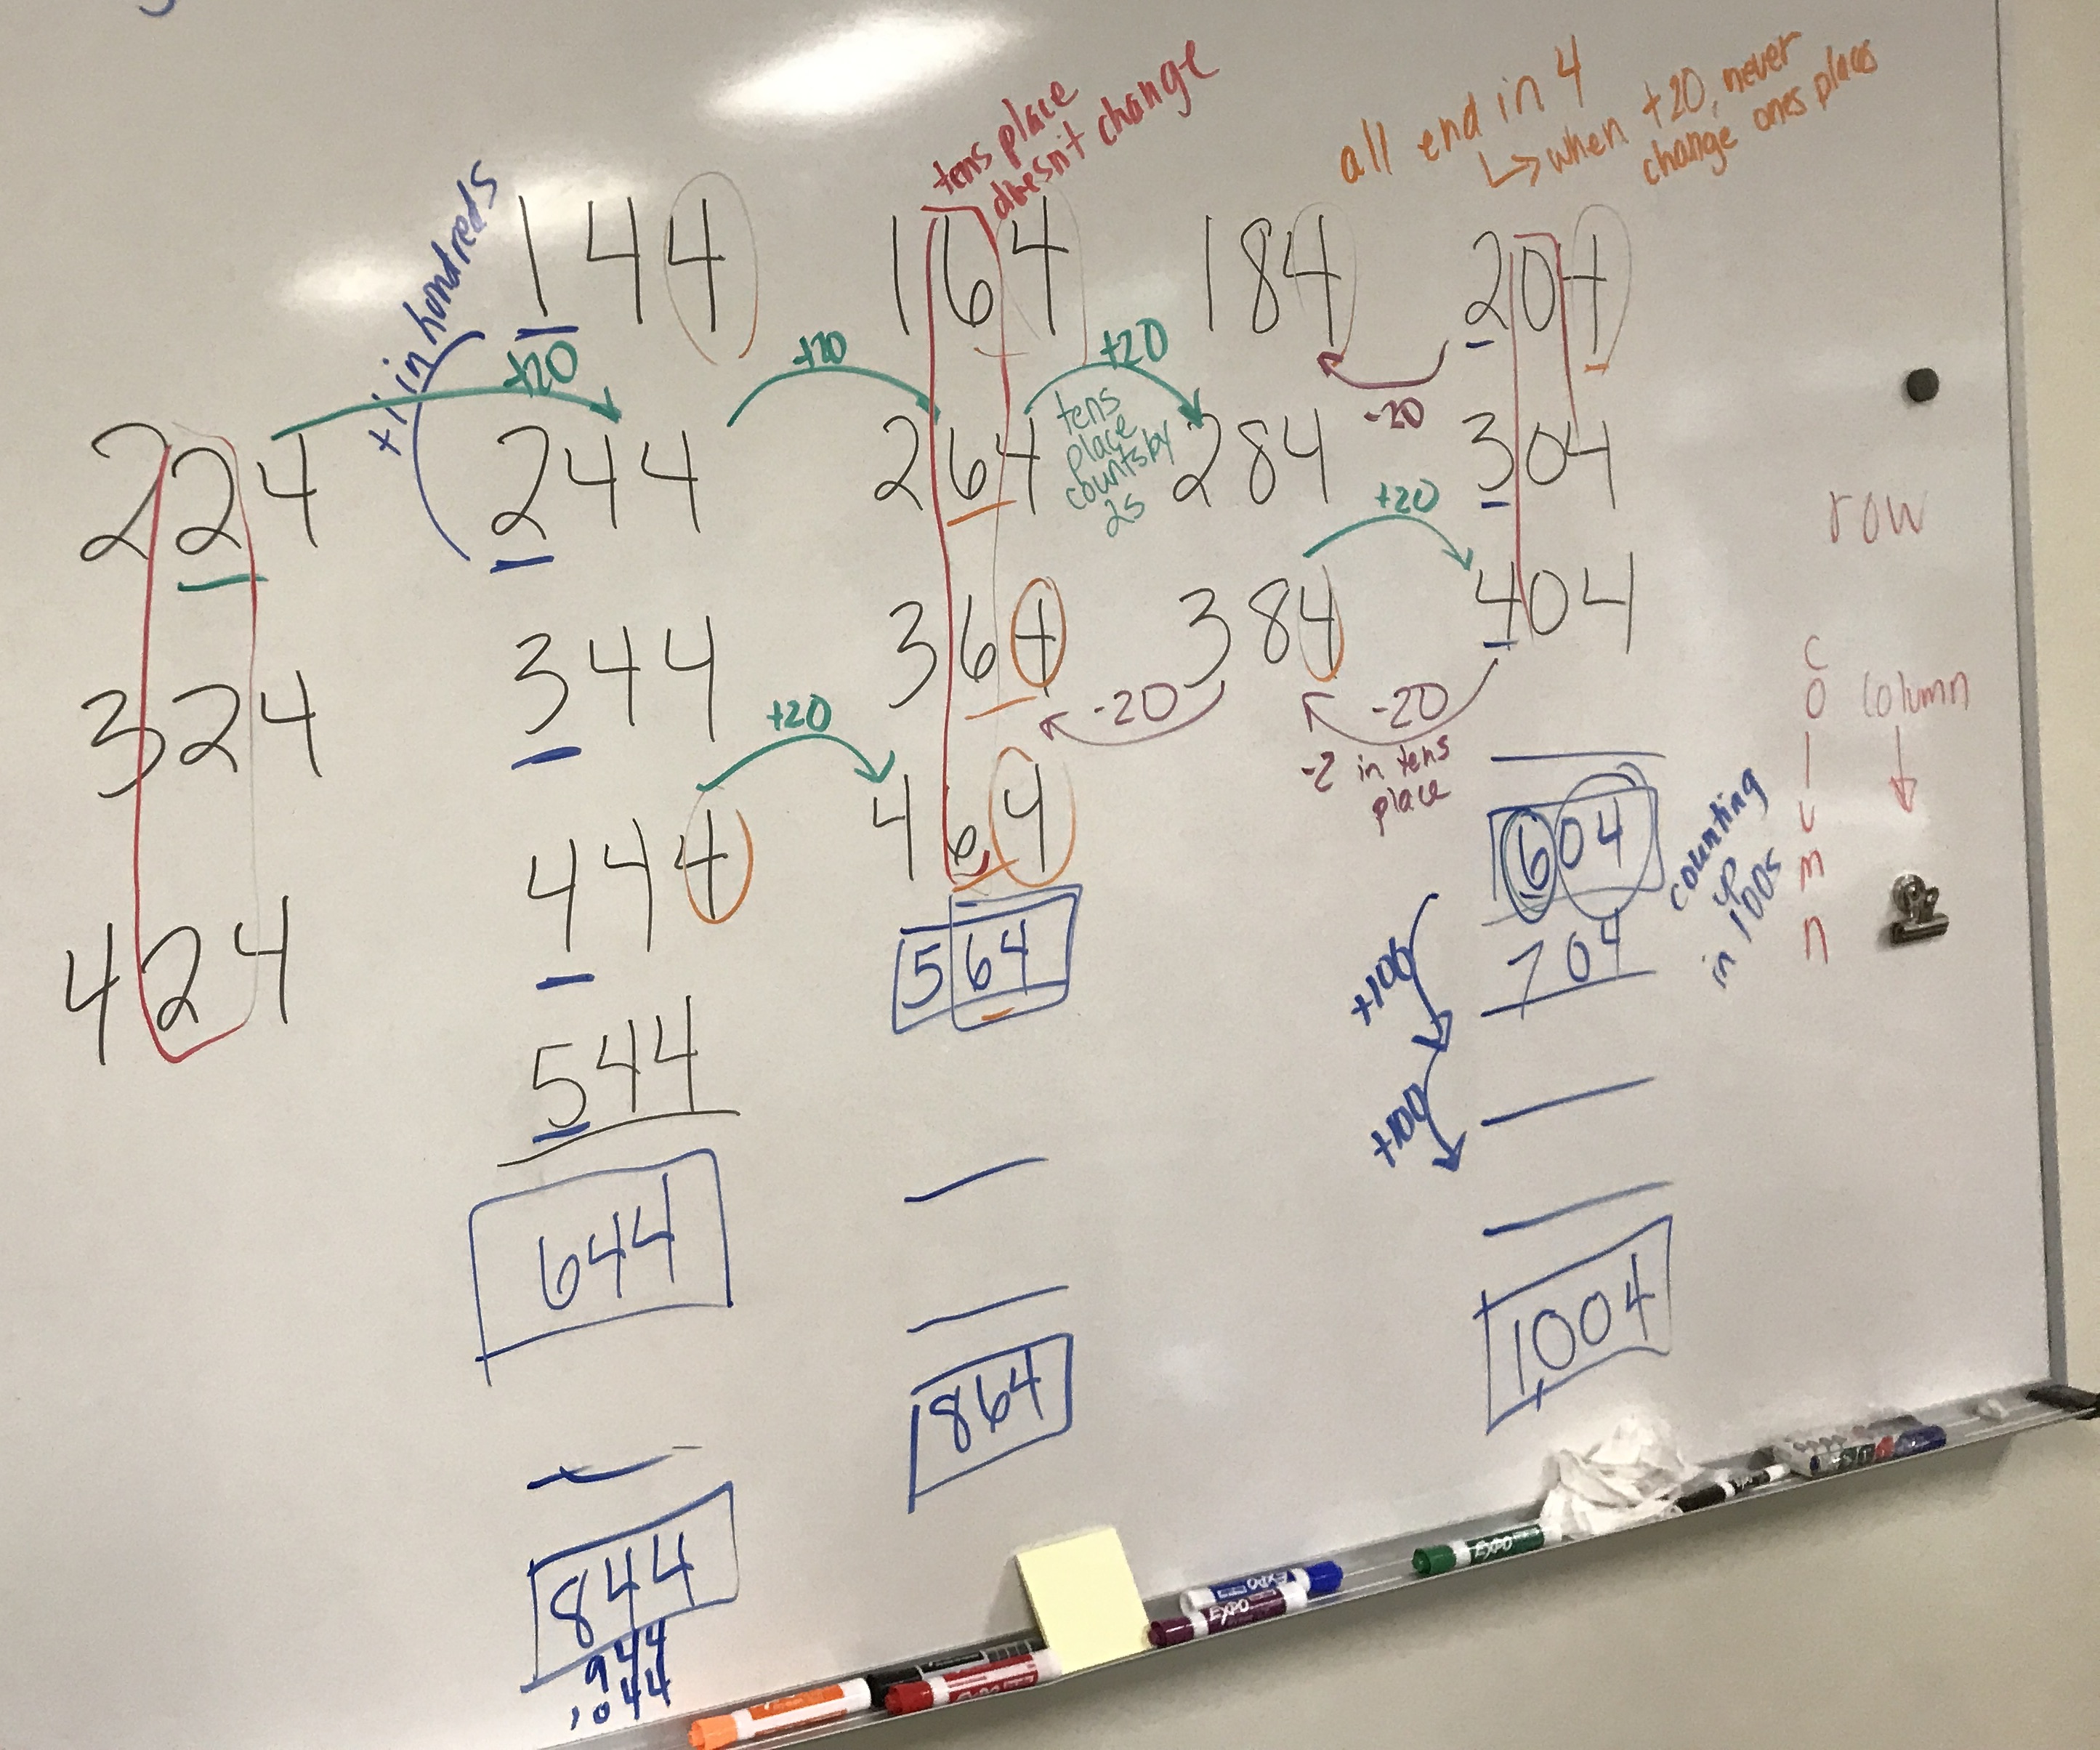 tens place
doesn't change
all end in 4
↳ when +20, never
change ones place
+1 in hundreds
144 164 184 204
+20 +20 +20 -20
224 244 264 284 304
tens
place
counts by
2s
+20
row
344 364 384 404
324
+20 -20 -20
-2 in tens
place
column
column
444 464
604
counting
up
in 100s
424
564
+100
704
544
+100
644
1,004
864
844
944
1044
EXPO
EXPO
EXPO